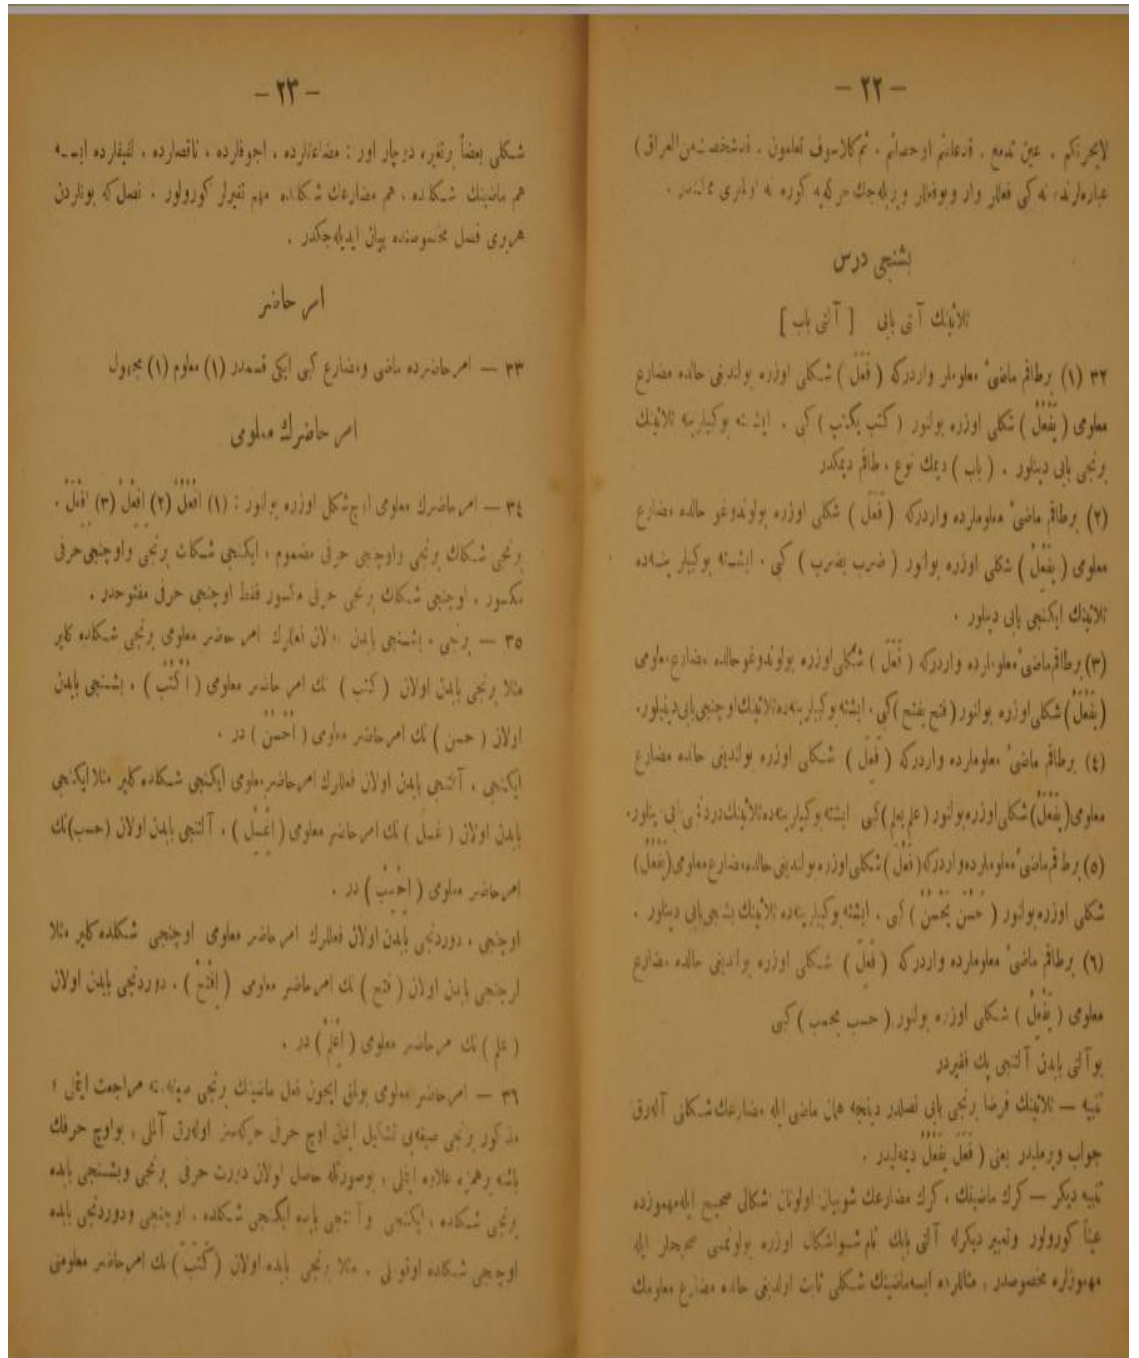 — ٢٢ —
لايجرنكم . عين تدمع . قدعلمتم اوحصانم . ثم كلاسوف تعلمون . قدشخصت من العراق )
عباره‌لرنده نه كبى فعللر وار وبوفعللر ويريله‌جك حركه‌يه كوره نه
بشنجى درس
ثلاثينك آلتى بابى [ آلتى باب ]
٣٢ (١) برطاقم ماضىٔ معلوملر واردركه ( فَعَلَ ) شكلى اوزره بولنديغى حالده مضارع
معلومى ( يَفْعُلُ ) شكلى اوزره بولنور ( كتب يكتب ) كبى . ايشته بوكبيلرينه ثلاثينك
برنجى بابى دينلور . ( باب ) ديمك نوع ، طاقم ديمكدر
(٢) برطاقم ماضىٔ معلوملرده واردركه ( فَعَلَ ) شكلى اوزره بولوندوغو حالده مضارع
معلومى ( يَفْعِلُ ) شكلى اوزره بولنور ( ضرب يضرب ) كبى . ايشته بوكبيلر ينه‌ده
ثلاثينك ايكنجى بابى دينلور .
(٣) برطاقم ماضىٔ معلوملرده واردركه ( فَعَلَ ) شكلى اوزره بولوندوغو حالده مضارع معلومى
(يَفْعَلُ) شكلى اوزره بولنور ( فتح يفتح ) كبى . ايشته بوكبيلرينه‌ده ثلاثينك اوچنجى بابى دينيلور.
(٤) برطاقم ماضىٔ معلوملرده واردركه ( فَعِلَ ) شكلى اوزره بولنديغى حالده مضارع
معلومى (يَفْعَلُ) شكلى اوزره بولنور ( علم يعلم ) كبى ايشته بوكبيلرينه‌ده ثلاثينك دردنجى بابى دينلور.
(٥) برطاقم ماضىٔ معلوملرده واردركه ( فَعُلَ ) شكلى اوزره بولنديغى حالده مضارع معلومى (يَفْعُلُ)
شكلى اوزره بولنور ( حَسُنَ يَحْسُنُ ) كبى . ايشته بوكبيلرينه‌ده ثلاثينك بشنجى بابى دينلور .
(٦) برطاقم ماضىٔ معلوملرده واردركه ( فَعِلَ ) شكلى اوزره بولنديغى حالده مضارع
معلومى ( يَفْعِلُ ) شكلى اوزره بولنور ( حسب يحسب ) كبى
بوآلتى بابدن آلتنجى پك فقيردر
تنبيه — ثلاثينك فرضا برنجى بابى نصلدر دينجه همان ماضى ايله مضارعك شكلنى آله‌رق
جواب ويرمليدر يعنى ( فَعَلَ يَفْعُلُ ديمه‌ليدر .
تنبيه ديكر — كرك ماضينك ، كرك مضارعك شوبيان اولونان شكللرى صحيح ايله مهموزده
عيناً كورولور وتعبير ديكرله آلتى بابك تام شواشكال اوزره بولونمسى صحيحلر ايله
مهموزلره مخصوصدر ، مثاللرده ايسه ماضينك شكلى ثابت اولديغى حالده مضارع معلومك
— ٢٣ —
شكلى بعضاً برتغيره دوچار اور : مضاعفلرده ، اجوفلرده ، ناقصلرده ، لفيفلرده ايسه
هم ماضينك شكلنده ، هم مضارعك شكلنده مهم تغيرلر كورولور . نصل كه بونلردن
هربرى فصل مخصوصنده بيان ايديله‌جكدر .
امر حاضر
٣٣ — امر حاضرده ماضى ومضارع كبى ايكى قسمدر (١) معلوم (١) مجهول
امر حاضرك معلومى
٣٤ — امر حاضرك معلومى اوچ شكل اوزره بولنور : (١) اُفْعُلْ (٢) اِفْعِلْ (٣) اِفْعَلْ .
برنجى شكلك برنجى واوچنجى حرفى مضموم ، ايكنجى شكلك برنجى واوچنجى حرفى
مكسور ، اوچنجى شكلك برنجى حرفى مكسور فقط اوچنجى حرفى مفتوحدر .
٣٥ — برنجى ، بشنجى بابدن اولان فعللرك امر حاضر معلومى برنجى شكلده كلير
مثلا برنجى بابدن اولان ( كتب ) نك امر حاضر معلومى ( اُكْتُبْ ) ، بشنجى بابدن
اولان ( حسن ) نك امر حاضر معلومى ( اُحْسُنْ ) در .
ايكنجى ، آلتنجى بابدن اولان فعللرك امر حاضر معلومى ايكنجى شكلده كلير مثلا ايكنجى
بابدن اولان ( غسل ) نك امر حاضر معلومى ( اِغْسِلْ ) ، آلتنجى بابدن اولان (حسب) نك
امر حاضر معلومى ( اِحْسِبْ ) در .
اوچنجى ، دوردنجى بابدن اولان فعللرك امر حاضر معلومى اوچنجى شكلده كلير مثلا
اوچنجى بابدن اولان ( فتح ) نك امر حاضر معلومى ( اِفْتَحْ ) ، دوردنجى بابدن اولان
( علم ) نك امر حاضر معلومى ( اِعْلَمْ ) در .
٣٦ — امر حاضر معلومى بولمق ايچون فعل ماضينك برنجى صيغه‌سنه مراجعت ايتملى ؛
مذكور برنجى صيغه‌يى تشكيل ايدن اوچ حرفى حركه‌سز اوله‌رق آلملى ، بواوچ حرفك
باشنه برهمزه علاوه ايتملى ، بوصورتله حاصل اولان دورت حرفى برنجى وبشنجى بابده
برنجى شكلده ، ايكنجى وآلتنجى بابده ايكنجى شكلده ، اوچنجى ودوردنجى بابده
اوچنجى شكلده اوقوملى . مثلا برنجى بابده اولان ( كَتَبَ ) نك امر حاضر معلومنى